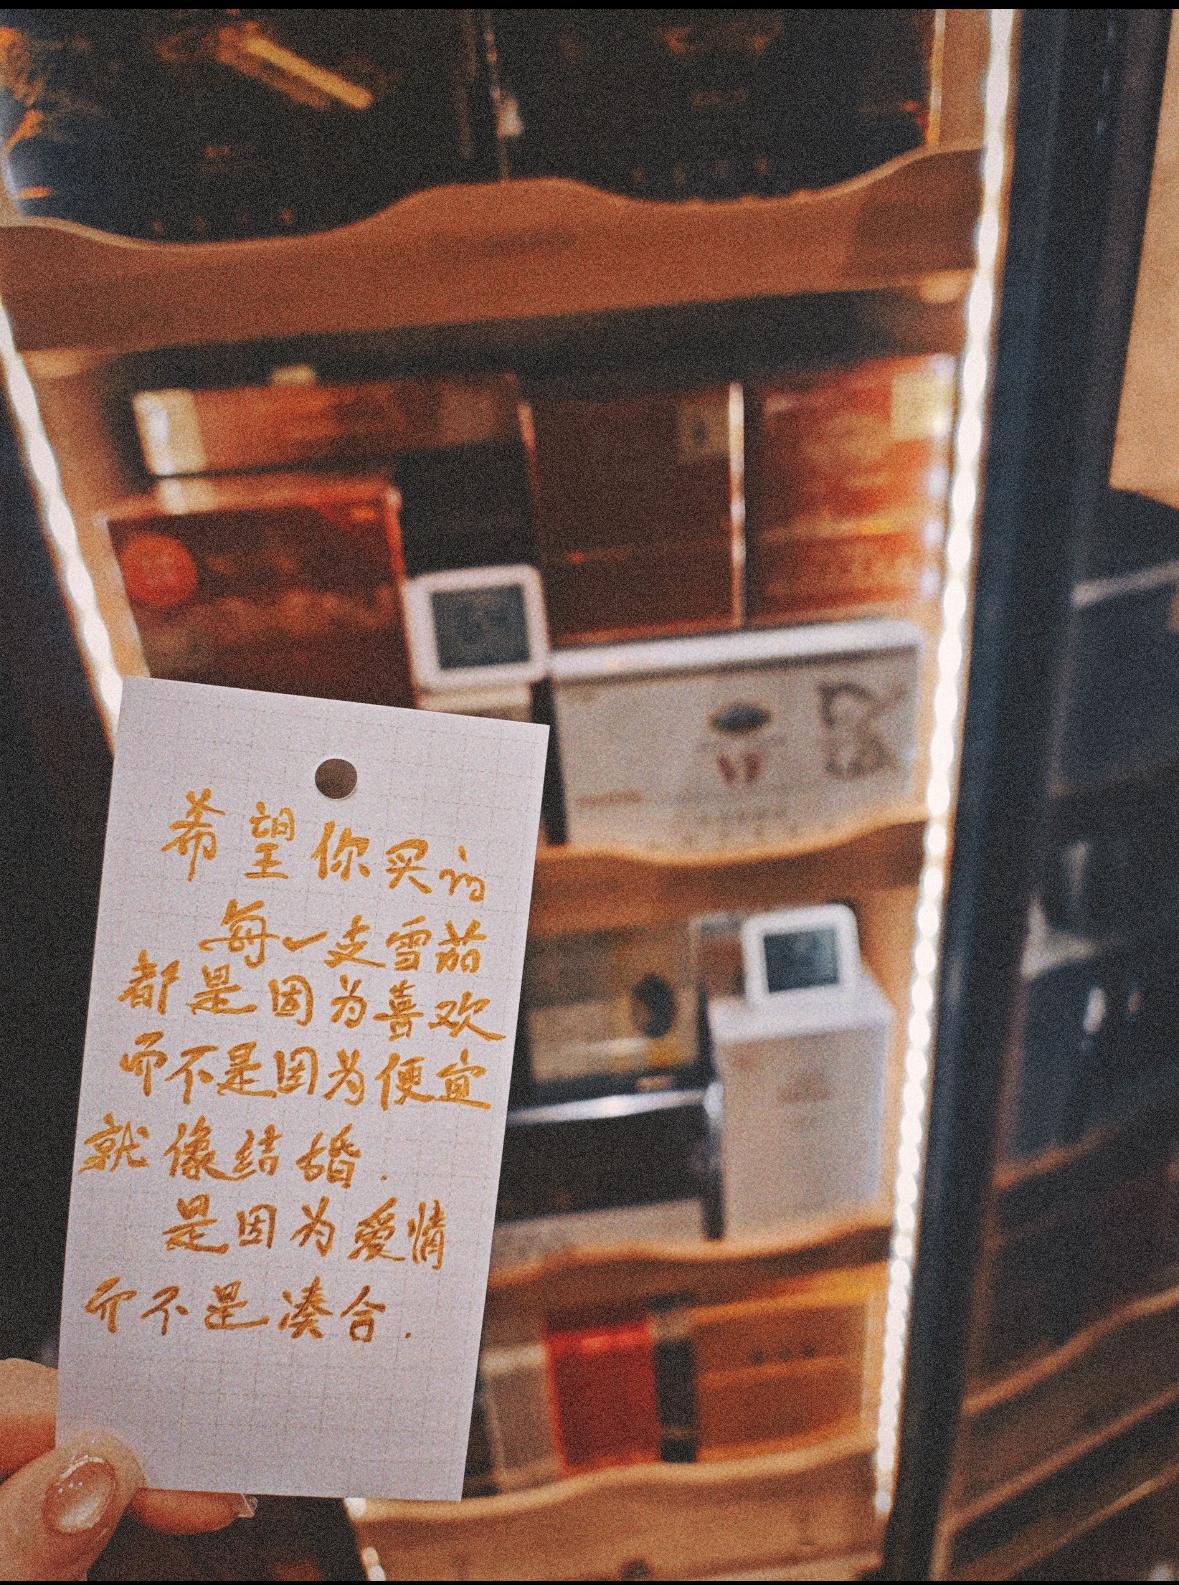 希望你买的
每一支雪茄
都是因为喜欢
而不是因为便宜
就像结婚.
是因为爱情
而不是凑合.